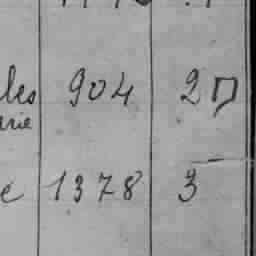 les 904 2
arie
e 1378 3